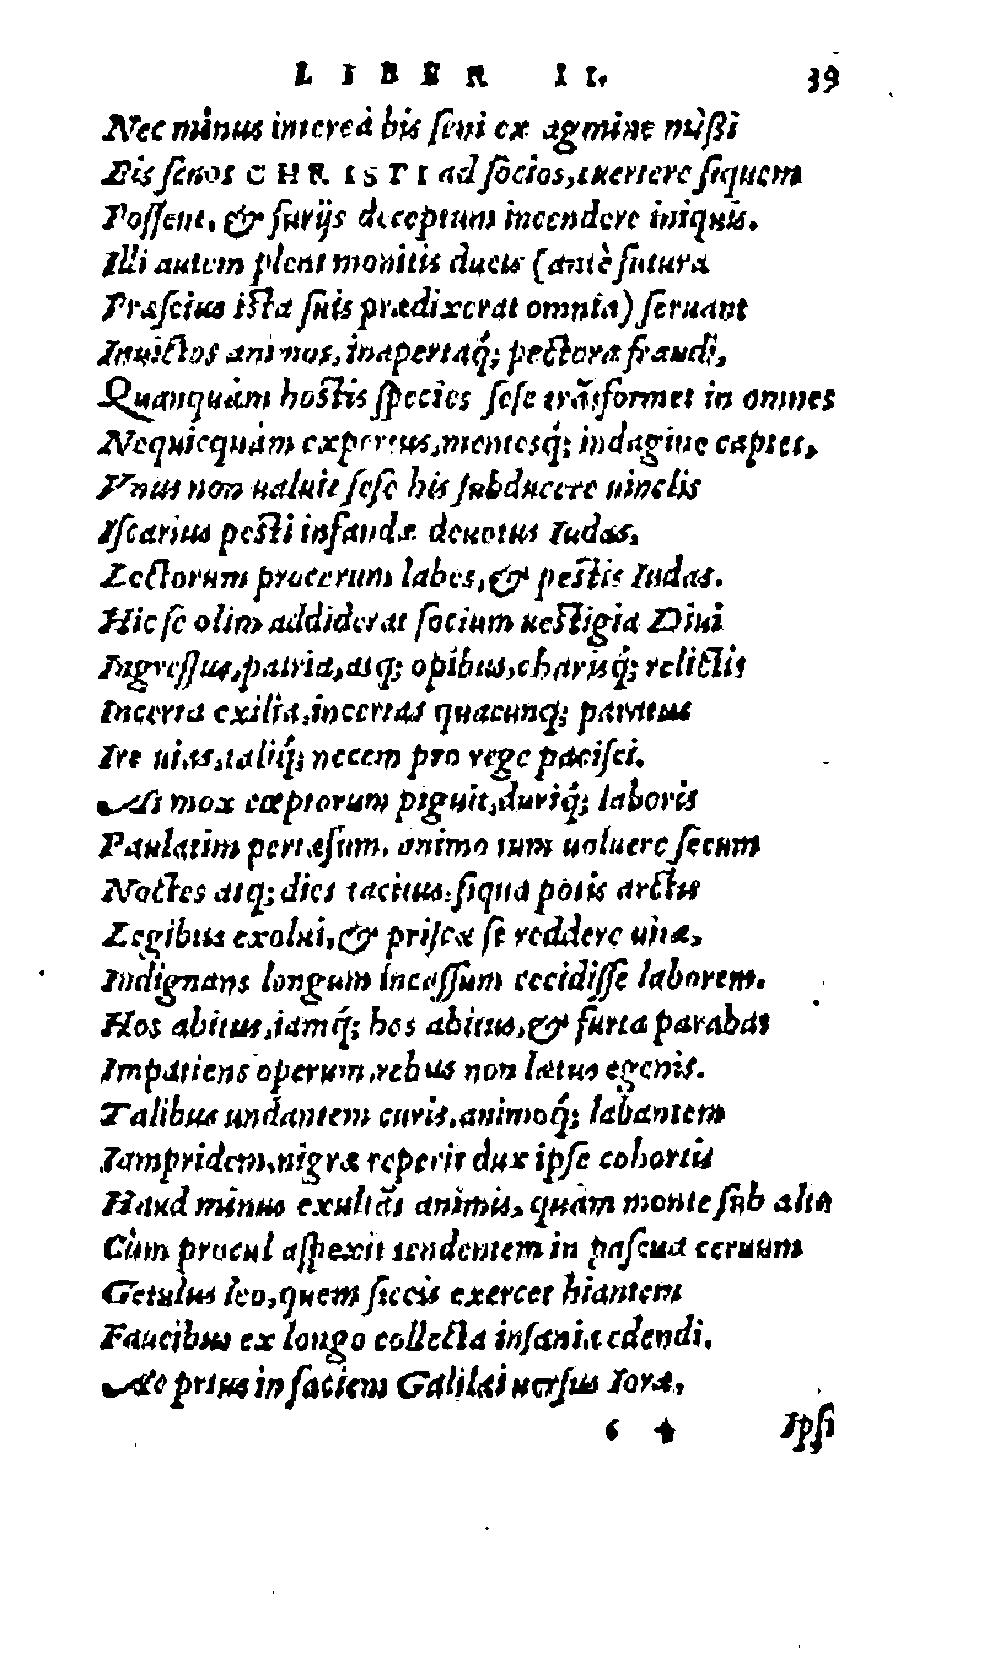 LIBER II. 39
Nec minus intereà bis seni ex agmine mißi
Bis senos CHRISTI ad socios, uertere siquem
Possent, & furijs deceptum incendere iniquis.
Illi autem pleni monitis ducis (antè futura
Præscius ista suis prædixerat omnia) seruant
Inuictos animos, inapertaq́; pectora fraudi,
Quanquàm hostis species sese trãsformet in omnes
Nequicquàm expertus, mentesq́; indagine captet,
Vnus non ualuit sese his subducere uinclis
Iscarius pesti infandæ deuotus Iudas,
Lectorum procerum labes, & pestis Iudas.
Hic se olim addiderat socium uestigia Diui
Ingressus, patria, atq; opibus, charisq́; relictis
Incerta exilia, incertas quacunq; paratus
Ire uias, taliq́; necem pro rege pacisci.
At mox cœptorum piguit, duriq́; laboris
Paulatim pertæsum, animo tum uoluere secum
Noctes atq; dies tacitus: siqua potis arctis
Legibus exolui, & priscæ se reddere uitæ,
Indignans longum incassum cecidisse laborem.
Hos abitus, iamq́; hos abitus, & furta parabat
Impatiens operum, rebus non lætus egenis.
Talibus undantem curis, animoq́; labantem
Iampridem, nigræ reperit dux ipse cohortis
Haud minus exultãs animis, quàm monte sub alto
Cùm procul aspexit tendentem in pascua ceruum
Getulus leo, quem siccis exercet hiantem
Faucibus ex longo collecta insania edendi.
Ac prius in faciem Galilæi uersus Ioræ,
6 Ipsi